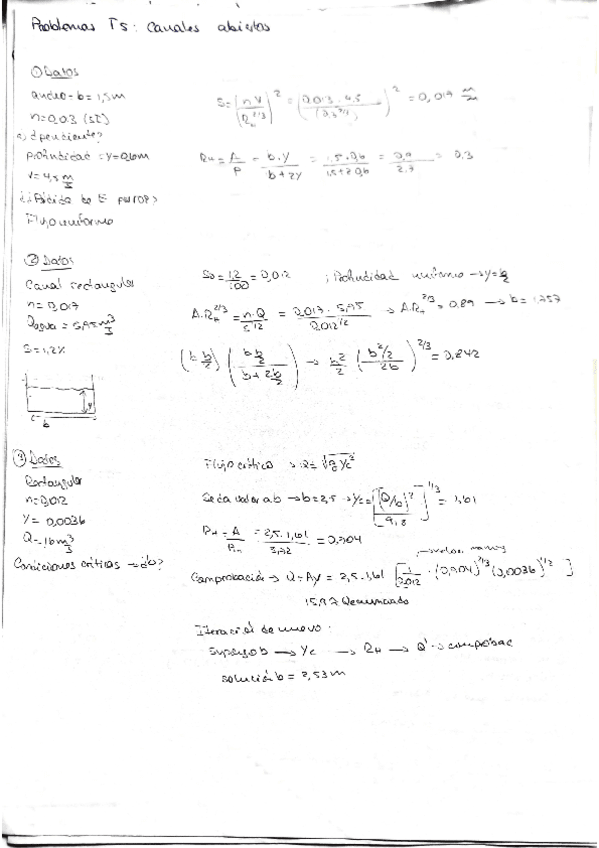 Problemas T5: Canales abiertos
① Datos
ancho = b = 1,5m
n = 0,013 (SI)
a) ¿pendiente?
profundidad = y = 0,6m
v = 4,5 m/s
Flujo uniforme
S = (n V / R_H^2/3)^2 = (0,013 · 4,5 / (0,3^2/3))^2 = 0,017 m/m
R_H = A/P = b·y / b+2y = 1,5·0,6 / 1,5+2·0,6 = 0,9 / 2,7 = 0,3
② Datos
Canal rectangular
n = 0,017
Qagua = 5,45 m³/s
S = 1,2%
b
S₀ = 1,2/100 = 0,012 ; Profundidad uniforme → y = b/2
A·R_H^2/3 = n·Q / S^1/2 = 0,017 · 5,45 / 0,012^1/2 → A·R_H^2/3 = 0,84 → b =
(b b/2) (b b/2 / b + 2b/2) → b²/2 (b²/2 / 2b)^2/3 = 0,842
③ Datos
Rectangular
n = 0,012
y = 0,0036
Q = 16 m³/s
Condiciones críticas → ¿b?
Flujo crítico →
Se da valor a b → b = 2,5 → yc = [(Q/b)² / 9,8]^1/3 = 1,61
R_H = A/P = 2,5 · 1,61 / = 0,704
Comprobación → Q = Av = 2,5 · 1,61 [1/0,012 · (0,704)^2/3 (0,0036)^1/2]
Iteración de nuevo:
Supongo b → yc → R_H → Q' → comprobar
solución b = 2,53 m